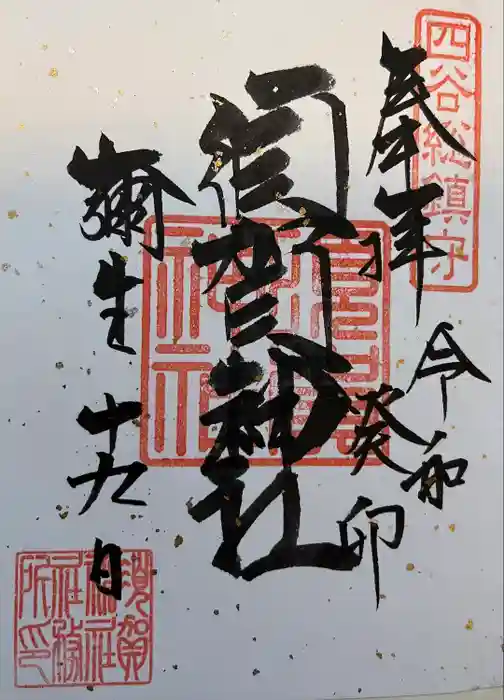 四谷総鎮守
奉拝
令和
癸卯
須賀神社
須賀神社
彌生十九日
須賀神社社務所印